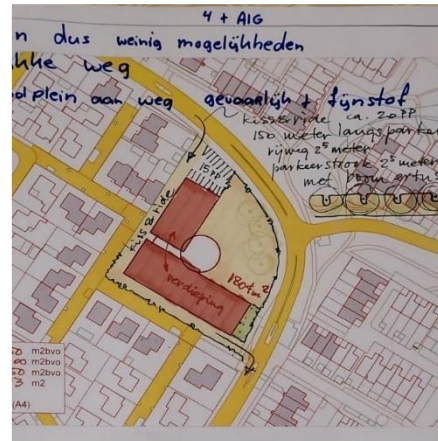 4 + AIG
n dus weinig mogelijkheden
kke weg
dplein aan weg gevaarlijk + fijnstof
kiss&ride ca. 20 PP
150 meter langsparke
rijweg 2⁵ meter
parkeerstrook 2⁵ meter
met boom ertus
15 PP
kiss&ride
verdieping
180 m²
m2bvo
00 m2bvo
50 m2bvo
3 m2
(A4)